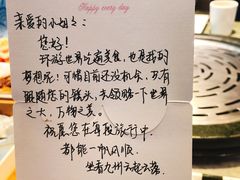 Happy every day
亲爱的小姐姐：
您好！
环游世界吃遍美食，也是我的
梦想呢！可惜目前还没机会，只有
跟随您的镜头，去领略一下世界
之大，万物之美。
祝愿您在每段旅行中，
都能一帆风顺。
坐看九州云起云落